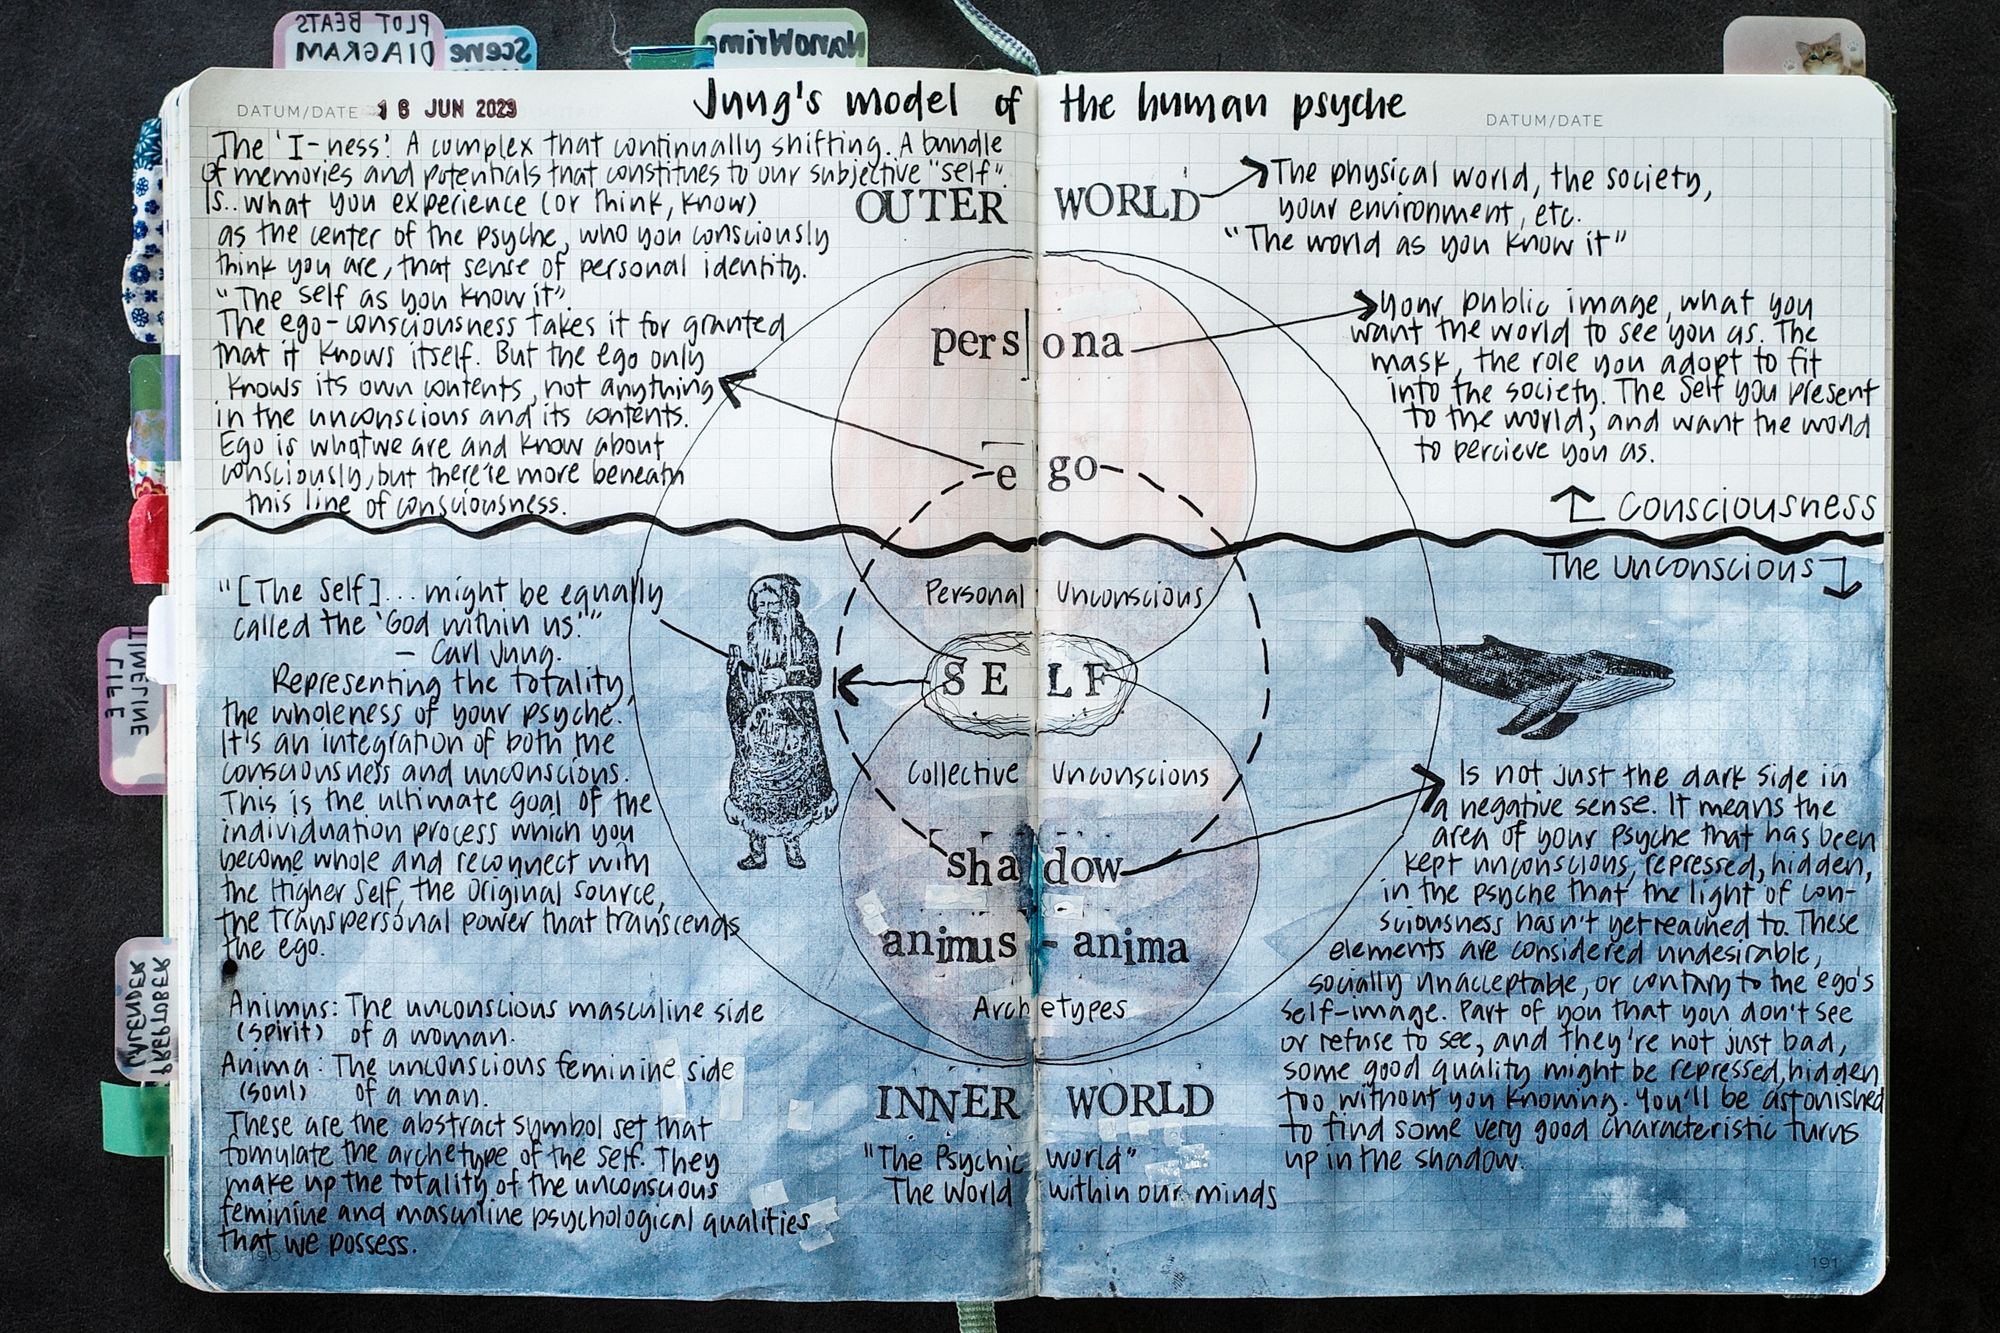 PLOT BEATS
DIAGRAM
Scene
NanoWrimo
DATUM/DATE 16 JUN 2023
Jung's model of the human psyche
DATUM/DATE
The 'I-ness'. A complex that continually shifting. A bundle
of memories and potentials that constitues to our subjective "self".
Is.. what you experience (or think, know)
as the center of the psyche, who you consciously
think you are, that sense of personal identity.
"The self as you know it".
The ego-consciousness takes it for granted
that it knows itself. But the ego only
knows its own contents, not anything
in the unconscious and its contents.
Ego is what we are and know about
consciously, but there're more beneath
this line of consciousness.
OUTER WORLD
The physical world, the society,
your environment, etc.
"The world as you know it"
persona
your public image, what you
want the world to see you as. The
mask, the role you adopt to fit
into the society. The Self you present
to the world, and want the world
to percieve you as.
ego
Consciousness
The Unconscious
Personal Unconscious
SELF
"[The Self]... might be equally
called the 'God within us.'"
– Carl Jung.
Representing the totality,
the wholeness of your psyche.
It's an integration of both the
consciousness and unconscious.
This is the ultimate goal of the
individuation process which you
become whole and reconnect with
the Higher Self, the Original source,
the transpersonal power that transcends
the ego.
Collective Unconscious
shadow
Is not just the dark side in
a negative sense. It means the
area of your psyche that has been
kept unconscious, repressed, hidden,
in the psyche that the light of con-
sciousness hasn't yet reached to. These
elements are considered undesirable,
socially unacceptable, or contary to the ego's
self-image. Part of you that you don't see
or refuse to see, and they're not just bad,
some good quality might be repressed, hidden
too without you knowing. You'll be astonished
to find some very good characteristic turns
up in the shadow.
animus - anima
Archetypes
Animus: The unconscious masculine side
(spirit) of a woman.
Anima: The unconscious feminine side
(soul) of a man.
These are the abstract symbol set that
fomulate the archetype of the self. They
make up the totality of the unconscious
feminine and masculine psychological qualities
that we possess.
INNER WORLD
"The Psychic world"
The World within our minds
TIMELINE
LIFE
PREPTOBER
CALENDER
190
191